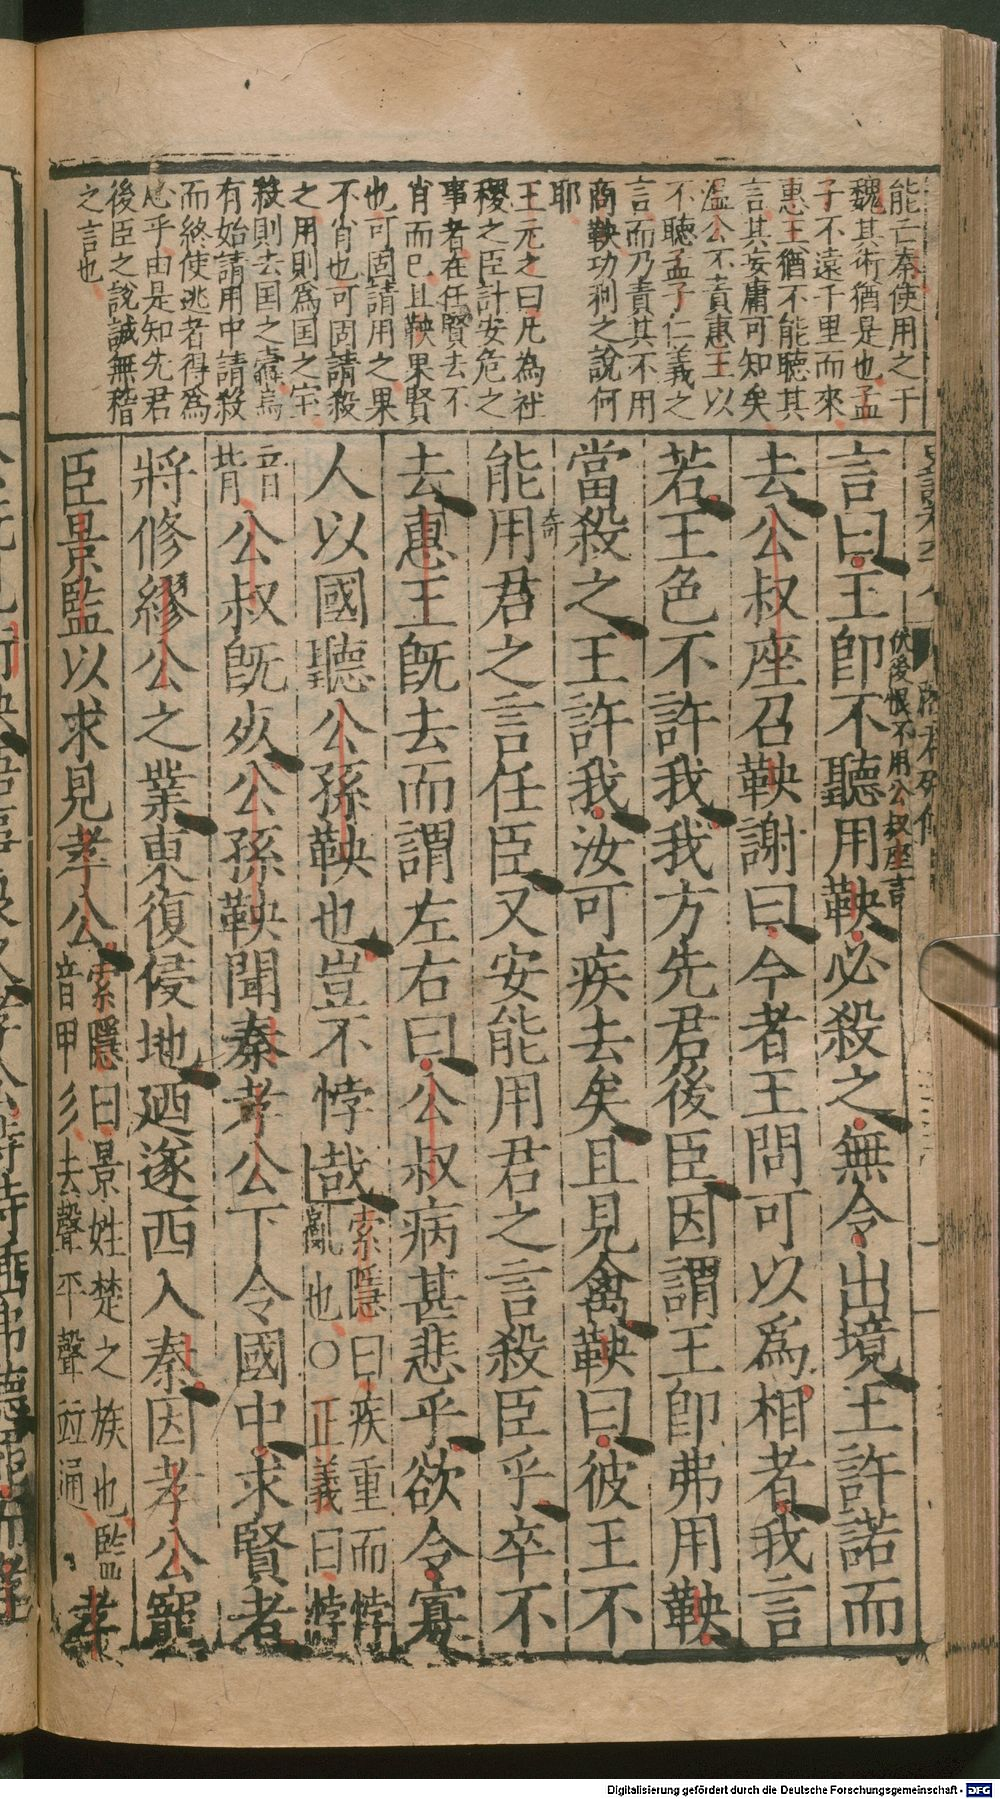 能亡秦使用之于
魏其術猶是也孟
子不遠千里而來
惠王猶不能聽其
言其妄庸可知矣
溫公不責惠王以
不聽孟子仁義之
言而乃責其不用
商鞅功利之說何
耶
王元之曰凡為社
稷之臣計安危之
事者在任賢去不
肖而已且鞅果賢
也可固請用之果
不肖也可固請殺
之用則爲国之宝
殺則去国之蠹焉
有始請用中請殺
而終使逃者得爲
忠乎由是知先君
後臣之說誠無稽
之言也
伏後恨不用公叔座言
言曰王卽不聽用鞅必殺之無令出境王許諾而
去公叔座召鞅謝曰今者王問可以爲相者我言
若王色不許我我方先君後臣因謂王卽弗用鞅
當殺之王許我汝可疾去矣且見禽鞅曰彼王不
能用君之言任臣又安能用君之言殺臣乎卒不
去惠王旣去而謂左右曰公叔病甚悲乎欲令寡
人以國聽公孫鞅也豈不悖哉
索隱曰疾重而悖
亂也〇正義曰悖
音
背
公叔旣死公孫鞅聞秦孝公下令國中求賢者
將修繆公之業東復侵地廼遂西入秦因孝公寵
臣景監以求見孝公
索隱曰景姓楚之族也監
音甲彡去聲平聲竝通
孝
Digitalisierung gefördert durch die Deutsche Forschungsgemeinschaft - DFG